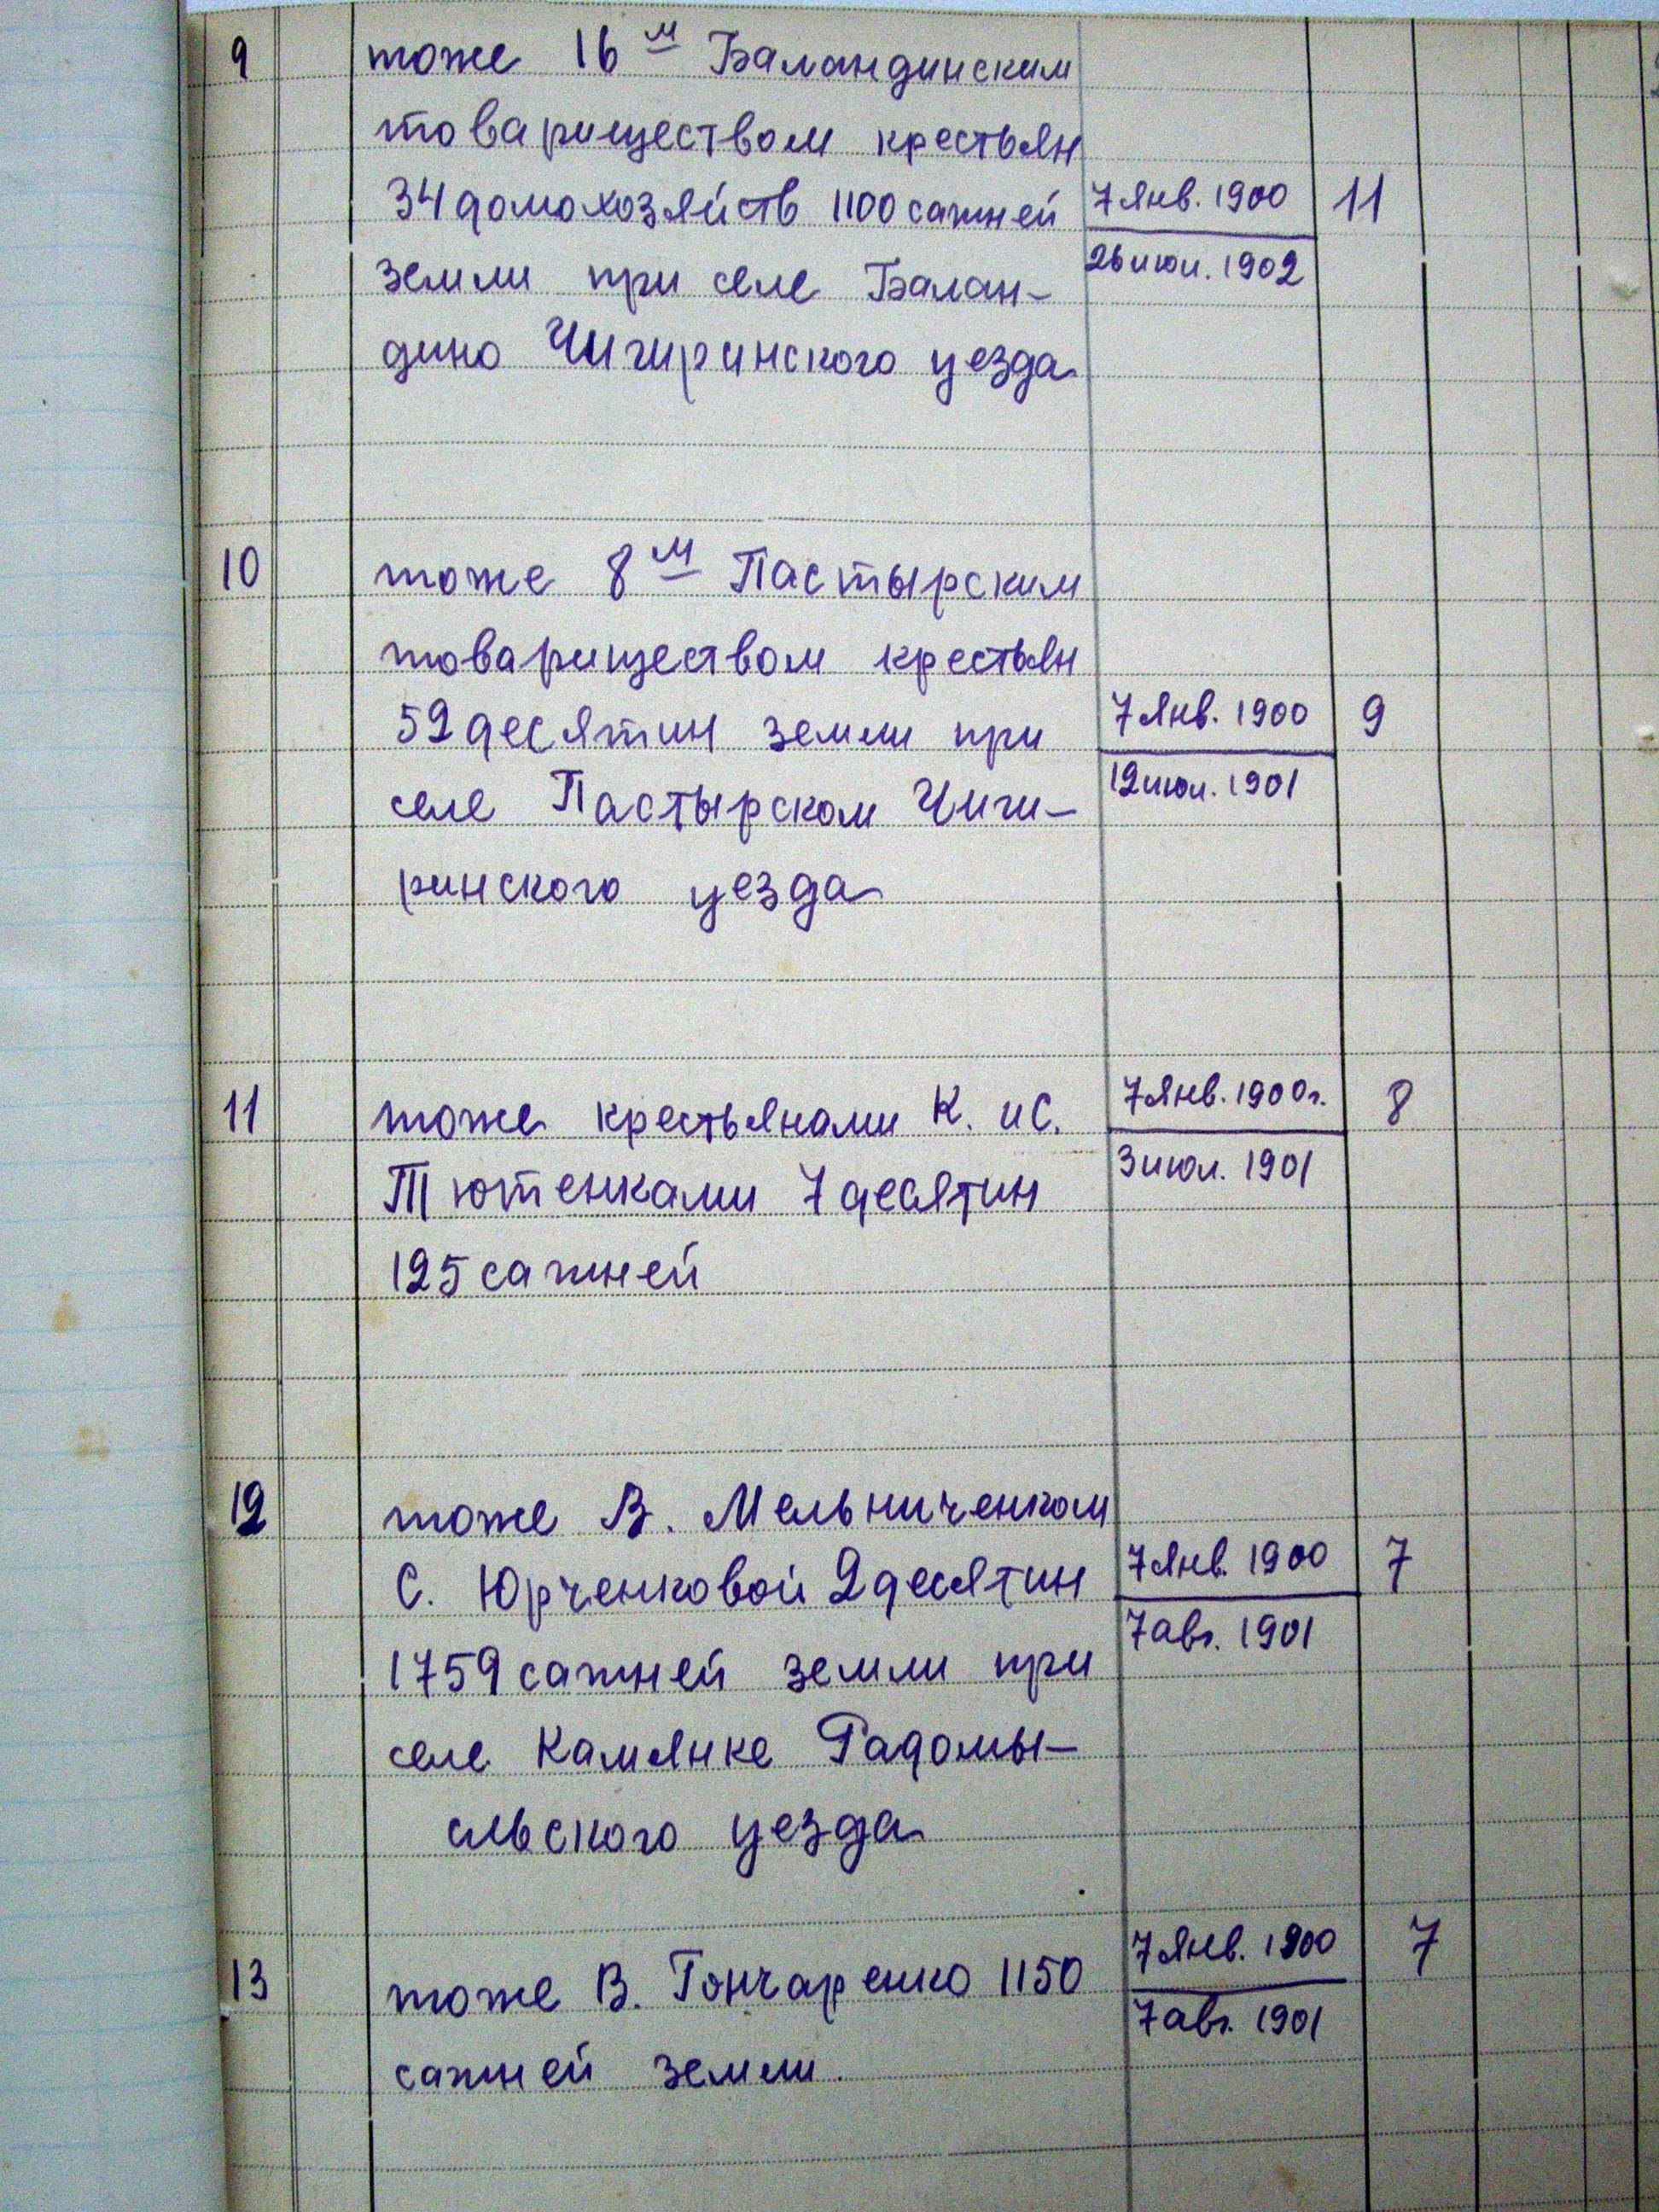 9 тоже 16м Баландинским
товариществом крестьян
34 домохозяйств 1100 сажней 7 янв. 1900 11
земли при селе Балан- 26 июл. 1902
дино Чигиринского уезда
10 тоже 8м Пастырским
товариществом крестьян
52 десятин земли при 7 янв. 1900 9
селе Пастырском Чиги- 12 июл. 1901
ринского уезда
11 тоже крестьянами К. и С. 7 янв. 1900 г. 8
Тютенками 7 десятин 3 июл. 1901
125 сажней
12 тоже В. Мельниченком
С. Юрченковой 2 десятин 7 янв. 1900 7
1759 сажней земли при 7 авг. 1901
селе Камянке Радомы-
сльского уезда
13 тоже В. Гончаренко 1150 7 янв. 1900 7
сажней земли. 7 авг. 1901